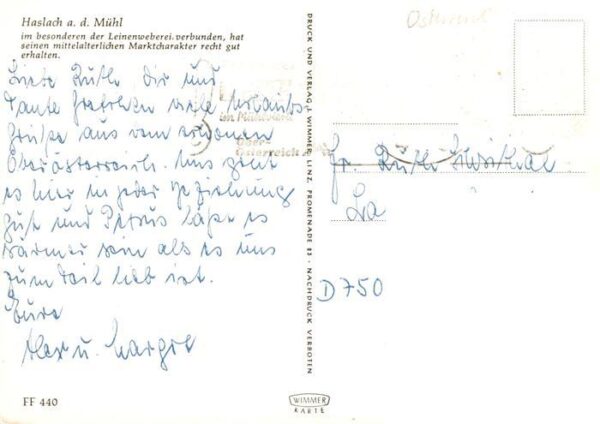 Haslach a. d. Mühl
im besonderen der Leinenweberei verbunden, hat
seinen mittelalterlichen Marktcharakter recht gut
erhalten.
Liebe Ruth, Dir und
Tante viele Urlaubs-
grüße aus dem schönen
Oberösterreich. Uns geht
es hier in jeder Beziehung
gut und Petrus läßt es
wärmer sein als es uns
zum Teil lieb ist.
Eure
Alex u. Margit
FF 440
im Mühlviertel
Ober-
österreich
DRUCK UND VERLAG J. WIMMER, LINZ, PROMENADE 23 - NACHDRUCK VERBOTEN
Österreich
Fr. Ruth
La
D 750
WIMMER
KARTE